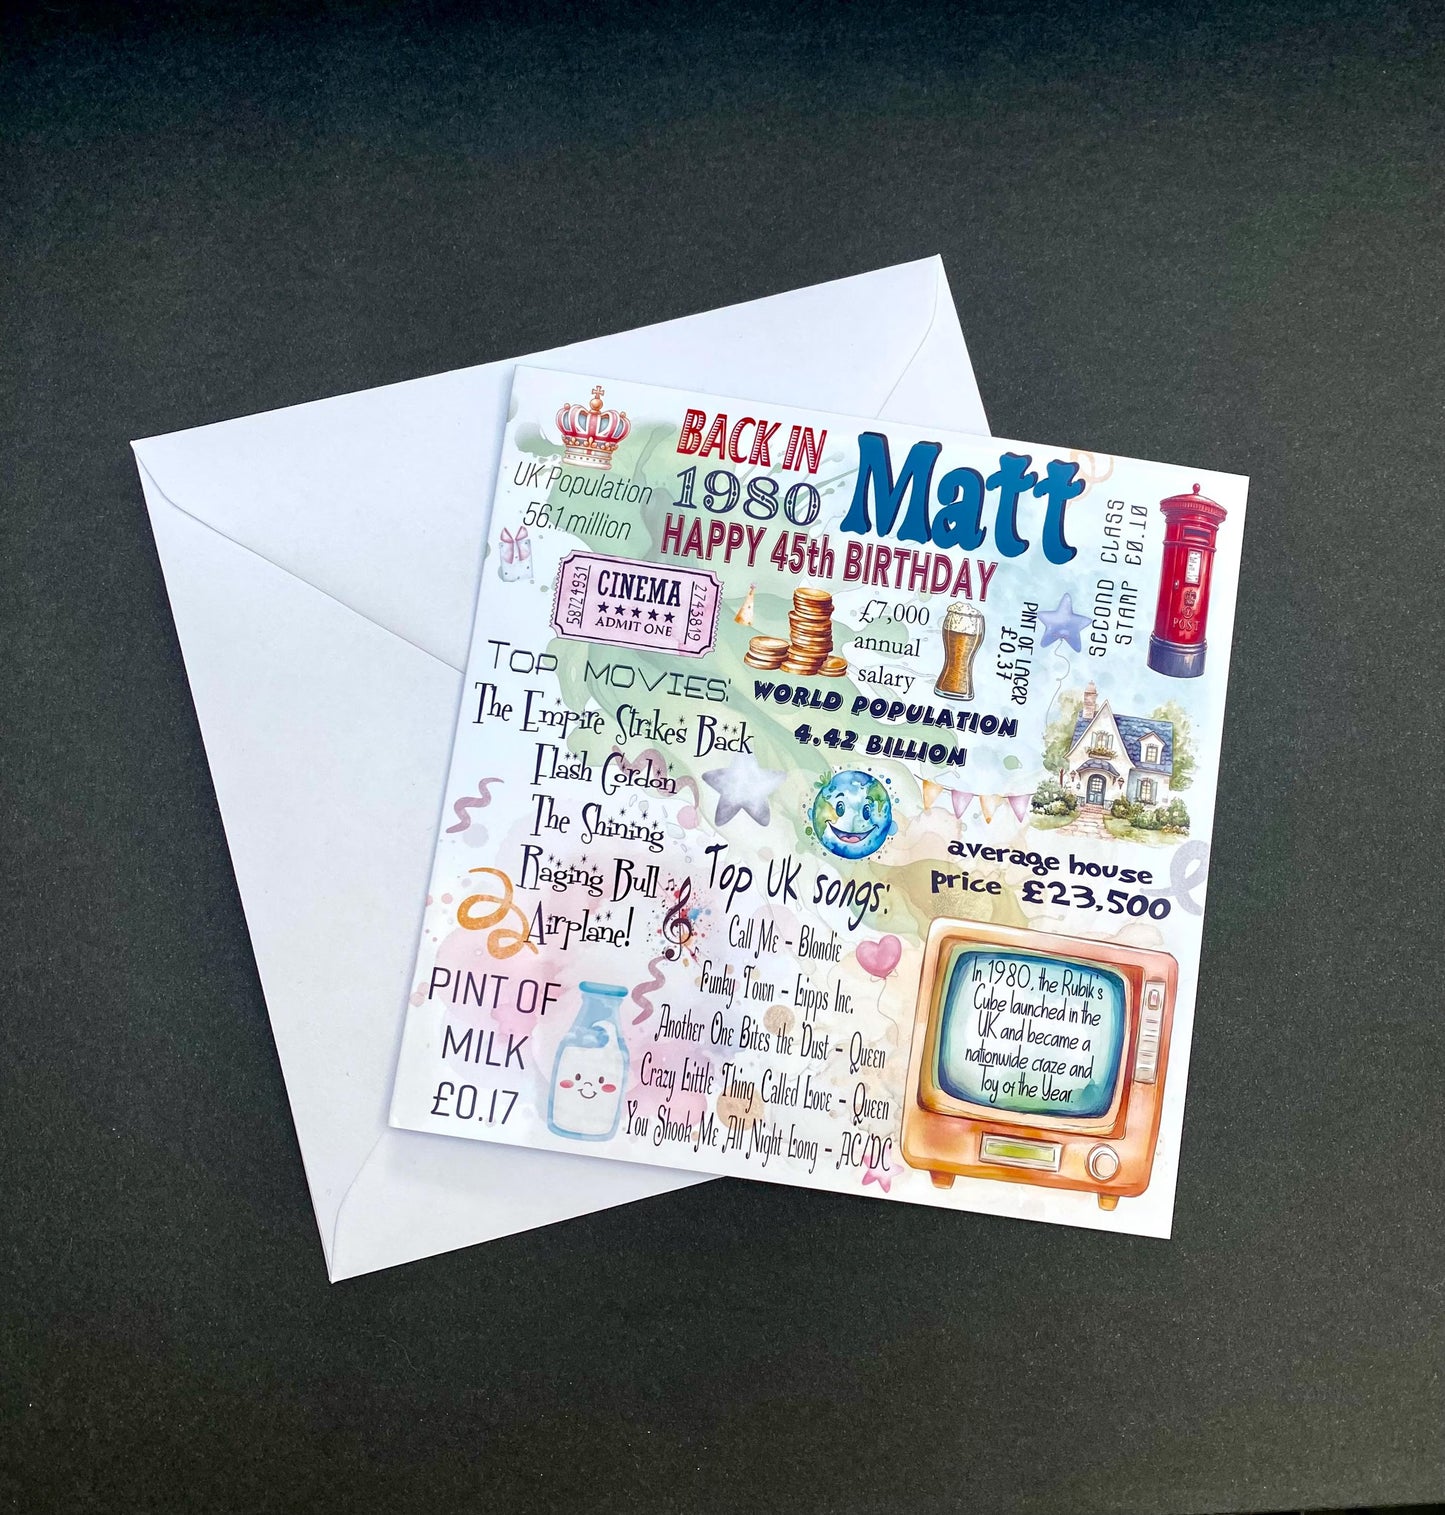 BACK IN
1980
Matt
HAPPY 45th BIRTHDAY
UK Population
56.1 million
58724931
CINEMA
ADMIT ONE
2743819
£7,000
annual
salary
PINT OF LAGER
£0.37
SECOND CLASS
STAMP £0.10
POST
TOP MOVIES:
The Empire Strikes Back
Flash Gordon
The Shining
Raging Bull
Airplane!
WORLD POPULATION
4.42 BILLION
average house
price £23,500
Top UK songs:
Call Me - Blondie
Funky Town - Lipps Inc.
Another One Bites the Dust - Queen
Crazy Little Thing Called Love - Queen
You Shook Me All Night Long - AC/DC
PINT OF
MILK
£0.17
In 1980, the Rubik's
Cube launched in the
UK and became a
nationwide craze and
Toy of the Year.